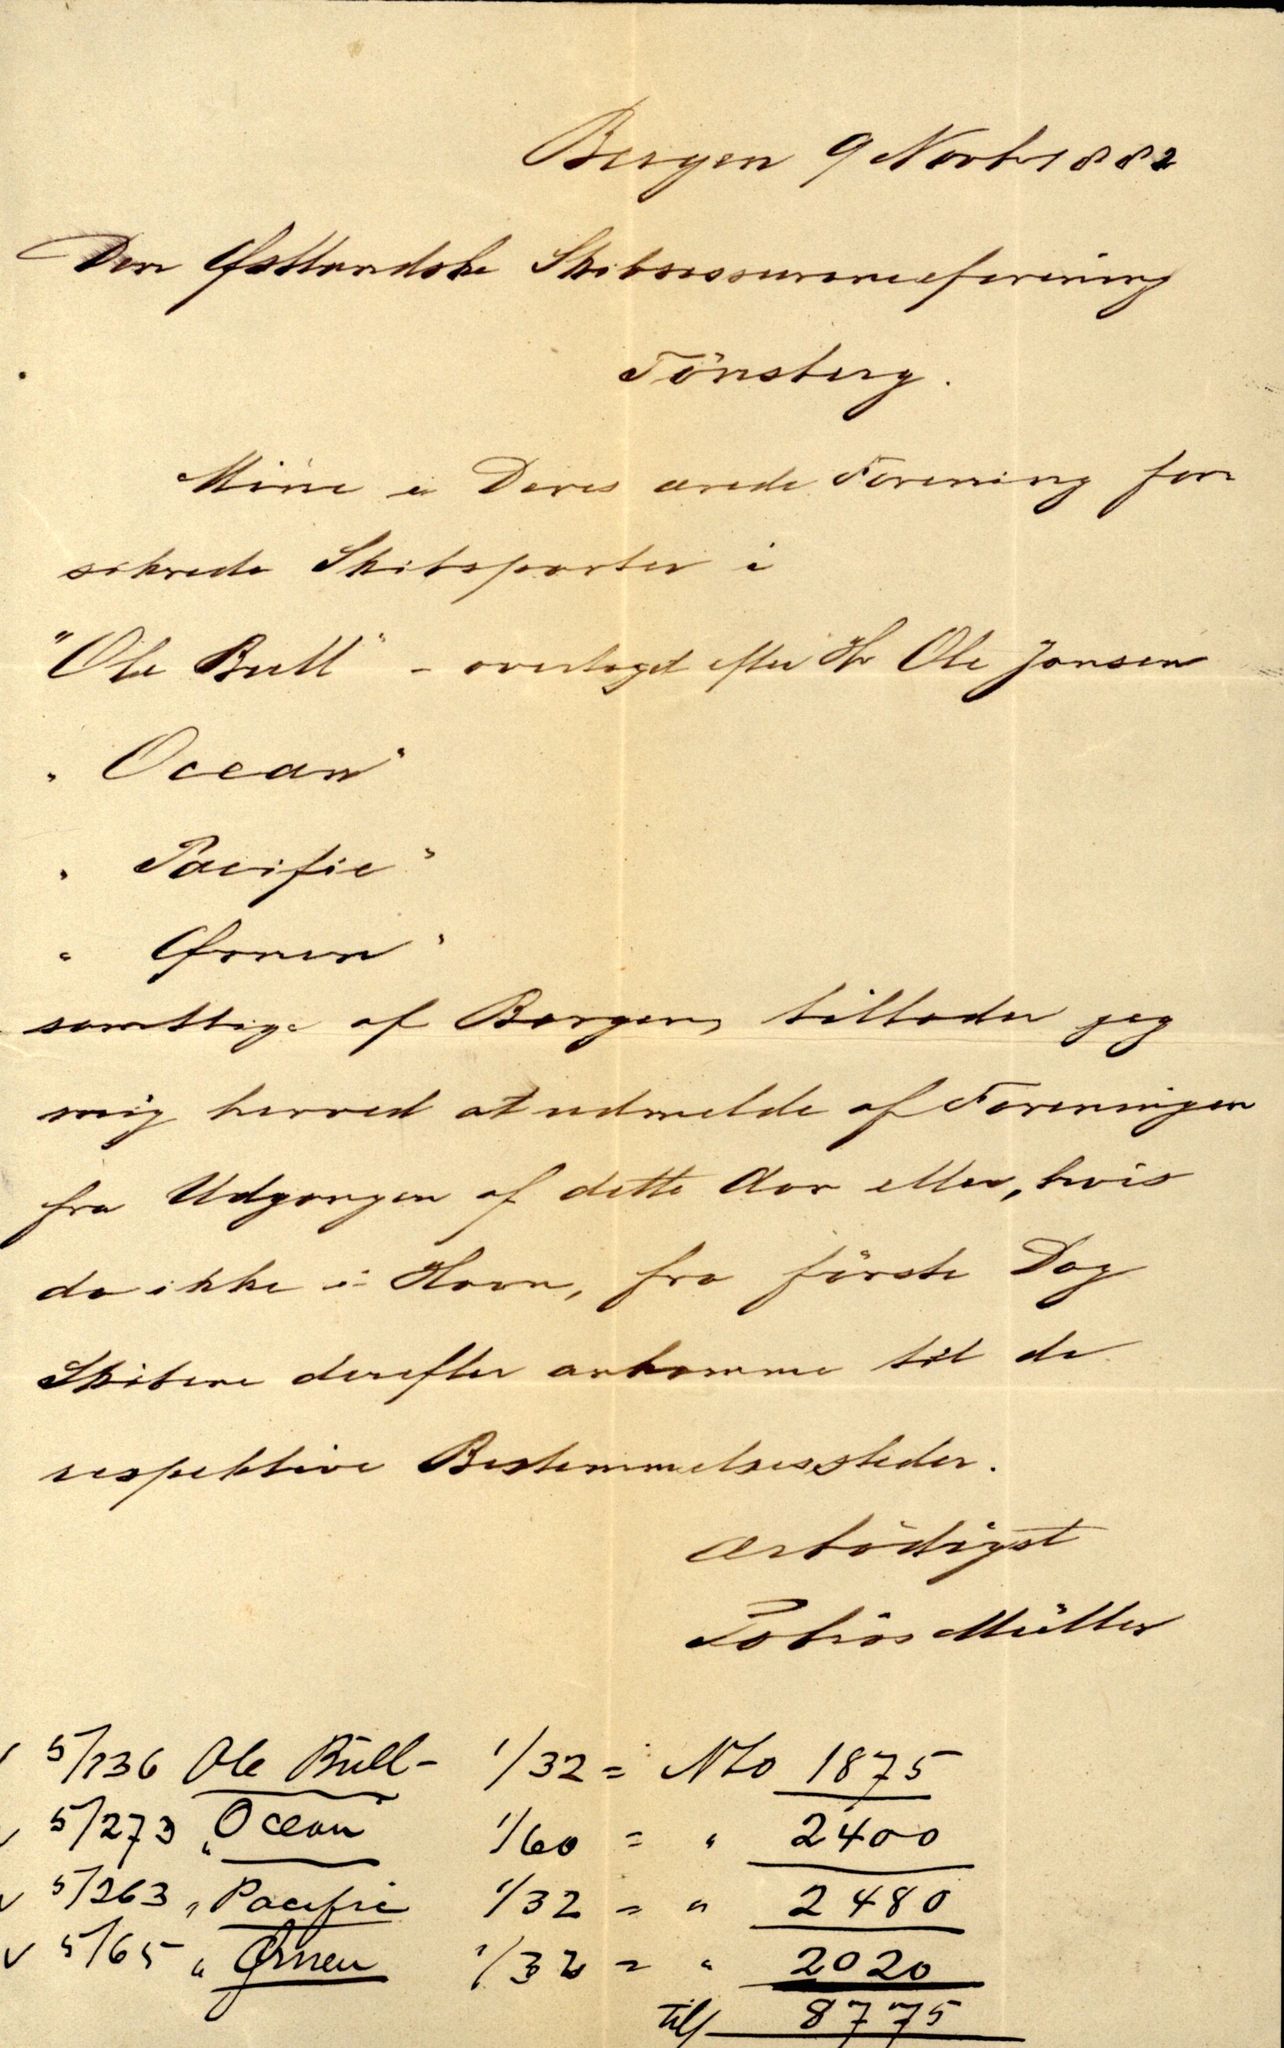 Bergen 9 Novbr 1882
Den Østlandske Skibsassuranceforening
Tönsberg.
Mine i Deres ærede Forening for-
sikrede Skibsparter i
"Ole Bull" - overtaget efter Hr Ole Jansen
" Ocean"
" Pacific"
" Ørnen"
samtlige af Bergen, tillader jeg
mig herved at udmelde af Foreningen
fra Udgangen af dette Aar eller, hvis
da ikke i Havn, fra förste Dag
Skibene derefter ankomme til de
respektive Bestemmelsessteder.
Ærbödigst
Tobias Müller
✓ 5/136 Ole Bull - 1/32 = Nto 1875
✓ 5/273 " Ocean 1/60 = " 2400
✓ 5/263 " Pacific 1/32 = " 2480
✓ 5/65 " Ørnen 1/32 = " 2020
till 8775